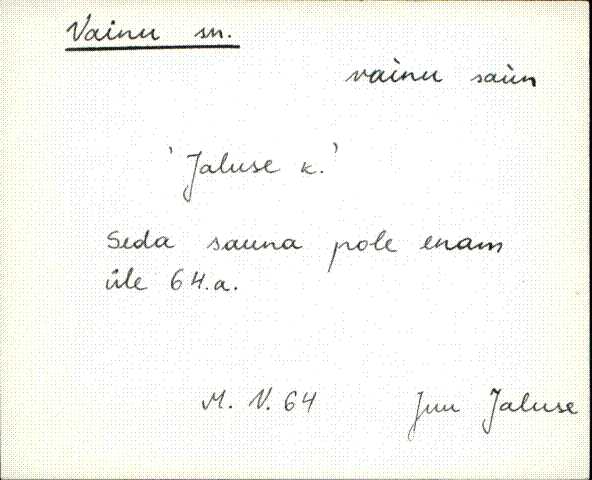 Vainu sn.
vainu saùn
'Jaluse k.'
Seda sauna pole enam
üle 64.a.
M. V. 64 Juu Jaluse